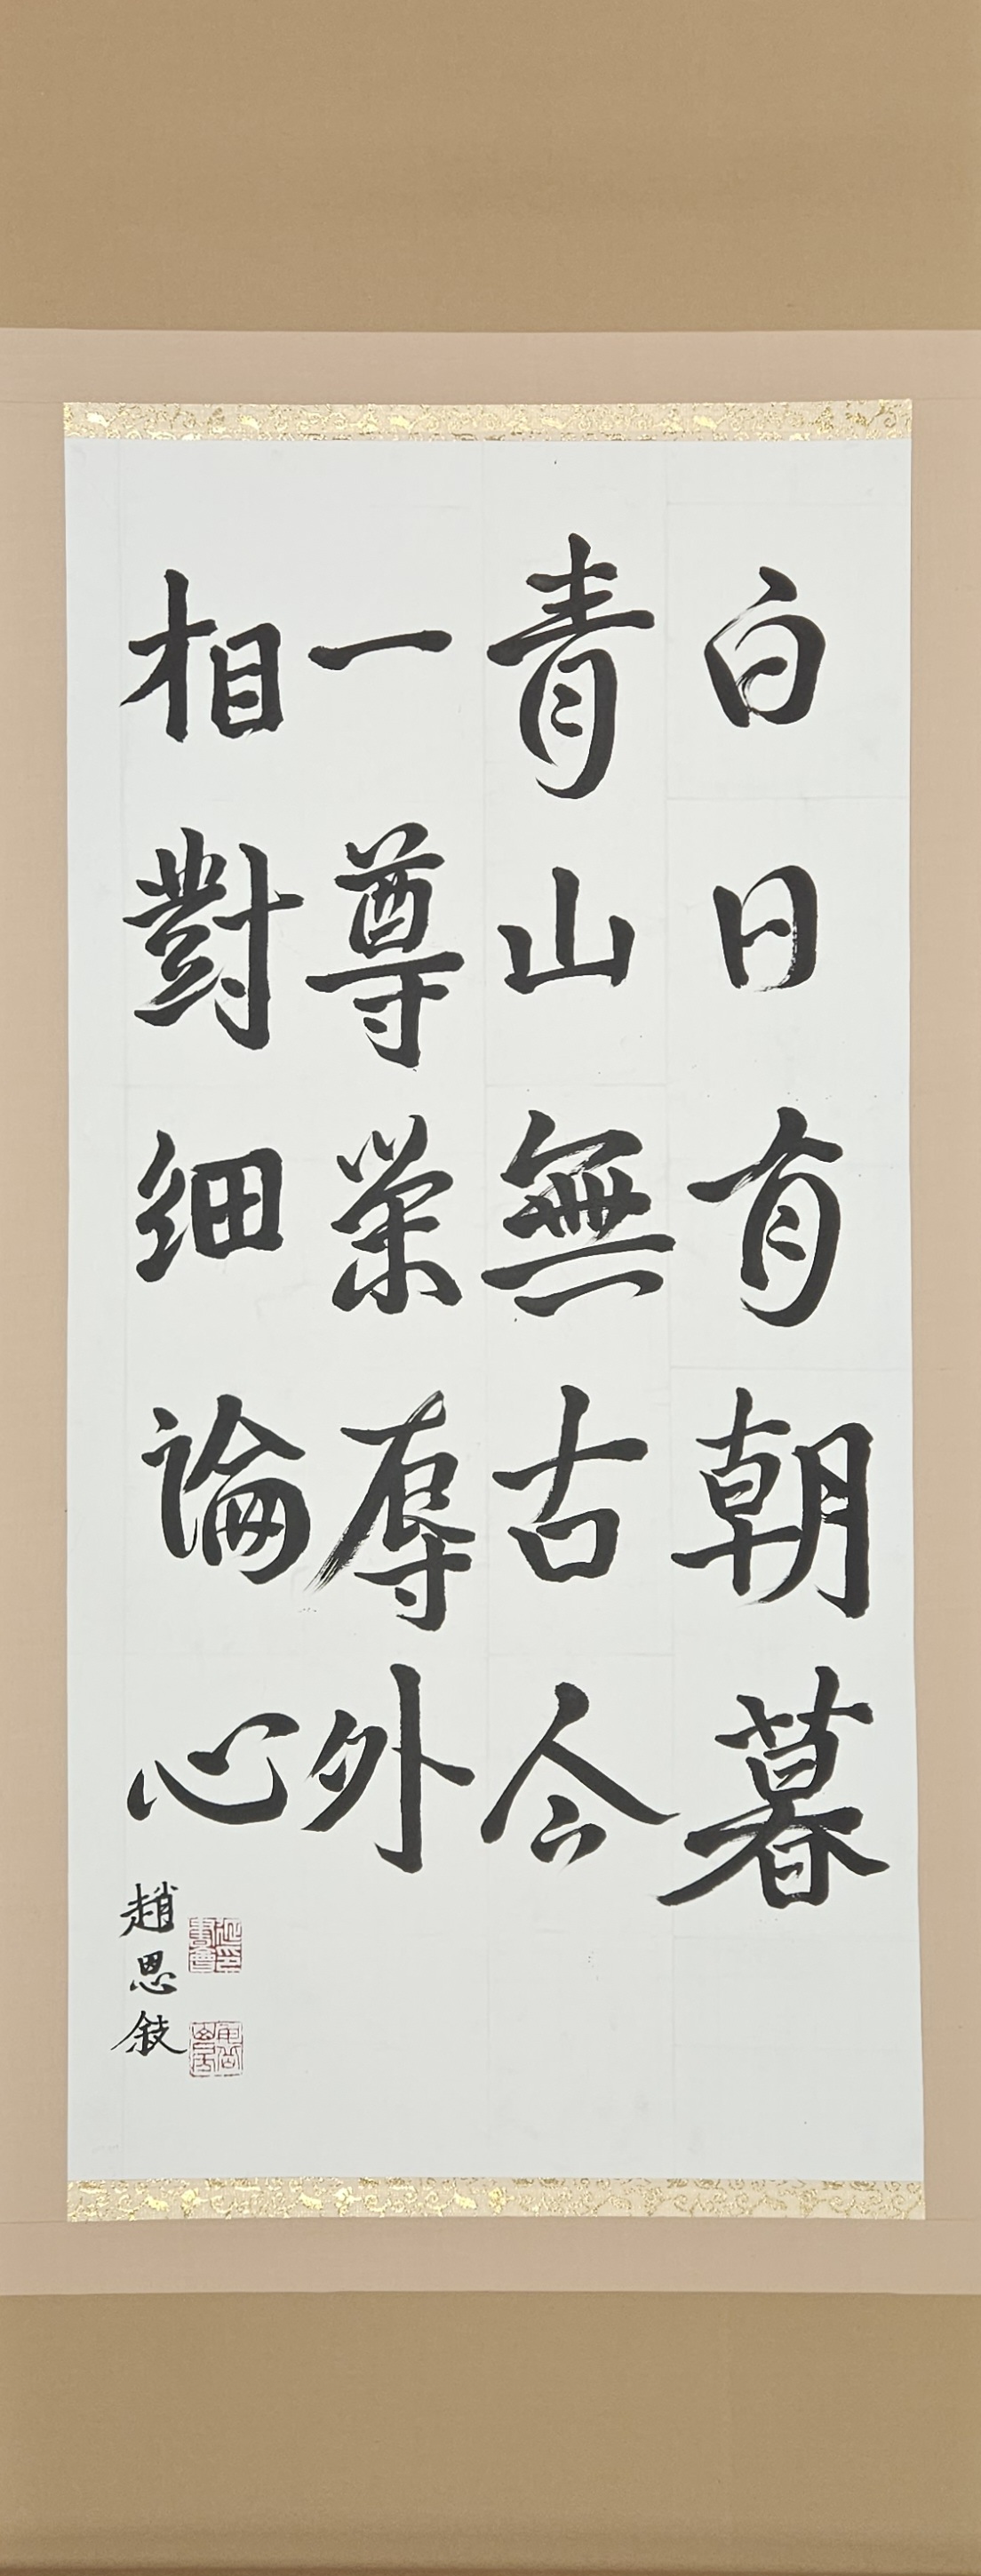 白日有朝暮
青山無古今
一尊榮辱外
相對細論心
趙思敍